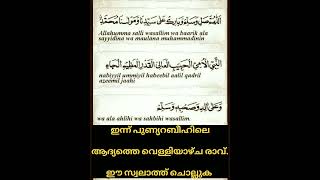 اَللّٰهُمَّ صَلِّ وَسَلِّمْ وَبَارِكْ عَلَى سَيِّدِنَا وَمَوْلَانَا مُحَمَّدٍ
Allahumma salli wasallim wa baarik ala
sayyidina wa maulana muhammadinin
النَّبِيِّ الْأُمِّيِّ الْحَبِيبِ الْعَالِي الْقَدْرِ الْعَظِيمِ الْجَاهِ
nabiyyil ummiyil habeebil aalil qadril
azeemil jaahi
وَعَلَى آلِهِ وَصَحْبِهِ وَسَلِّمْ
wa ala ahlihi wa sahbihi wasallim.
ഇന്ന് പുണ്യറബീഹിലെ
ആദ്യത്തെ വെള്ളിയാഴ്ച രാവ്.
ഈ സ്വലാത്ത് ചൊല്ലുക